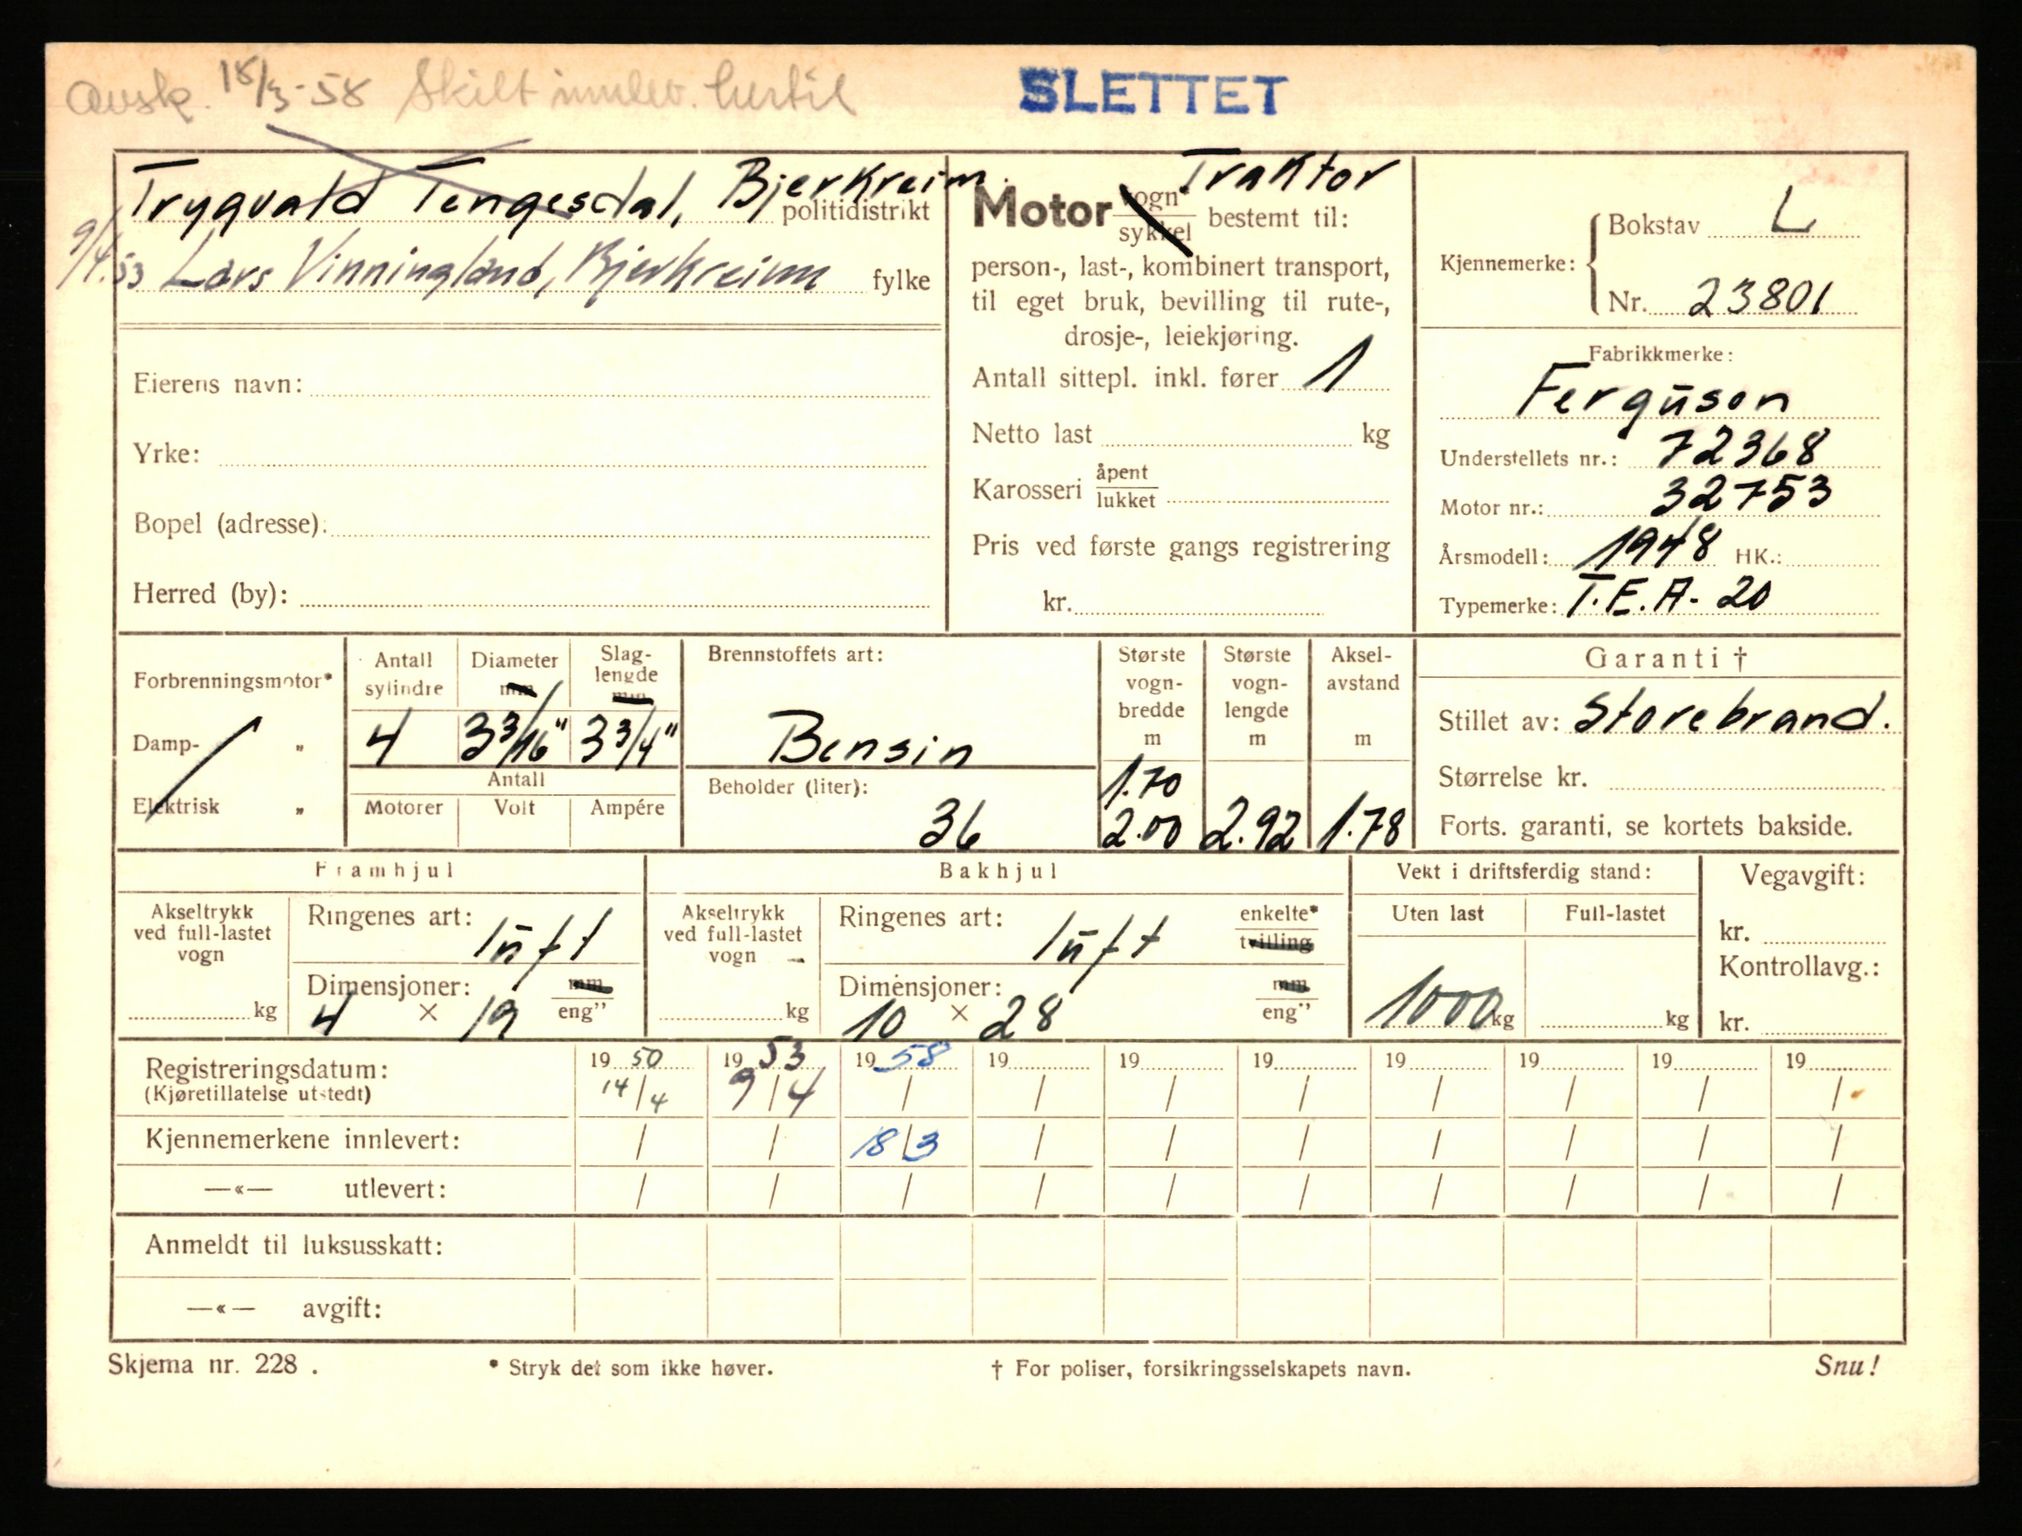 Avsk. 18/3-58 Skilt innlev. hertil
SLETTET
Trygvald Tengesdal, Bjerkreim.
politidistrikt
9/4.53 Lars Vinningland, Bjerkreim fylke
Eierens navn:
Yrke:
Bopel (adresse):
Herred (by):
Traktor
Motor vogn* sykkel bestemt til:
person-, last-, kombinert transport,
til eget bruk, bevilling til rute-,
drosje-, leiekjøring.
Antall sittepl. inkl. fører 1
Netto last kg
Karosseri åpent lukket
Pris ved første gangs registrering
kr.
Kjennemerke: Bokstav L
Nr. 23801
Fabrikkmerke:
Ferguson
Understellets nr.: 72368
Motor nr.: 32753
Årsmodell: 1948 HK.:
Typemerke: T.E.A- 20
Forbrenningsmotor*
Damp- "
Elektrisk "
Antall sylindre
Diameter mm
Slag-lengde mm
4 3 3/16" 3 3/4"
Antall
Motorer Volt Ampére
Brennstoffets art:
Bensin
Beholder (liter):
36
Største vogn-bredde m
1.70
2.00
Største vogn-lengde m
2.92
Aksel-avstand m
1.78
Garanti †
Stillet av: Storebrand.
Størrelse kr.
Forts. garanti, se kortets bakside.
Framhjul
Akseltrykk ved full-lastet vogn
kg
Ringenes art: luft
Dimensjoner: mm eng"
4 × 19
Bakhjul
Akseltrykk ved full-lastet vogn
kg
Ringenes art: luft enkelte* tvilling
Dimensjoner: mm eng"
10 × 28
Vekt i driftsferdig stand:
Uten last Full-lastet
1000 kg kg
Vegavgift:
kr.
Kontrollavg.:
kr.
Registreringsdatum: 19 50 19 53 19 58 19 19 19 19 19 19 19
(Kjøretillatelse utstedt) 14/4 9/4 / / / / / / / /
Kjennemerkene innlevert: / / 18/3 / / / / / / /
—«— utlevert: / / / / / / / / / /
Anmeldt til luksusskatt:
—«— avgift:
Skjema nr. 228 . * Stryk det som ikke høver. † For poliser, forsikringsselskapets navn. Snu!